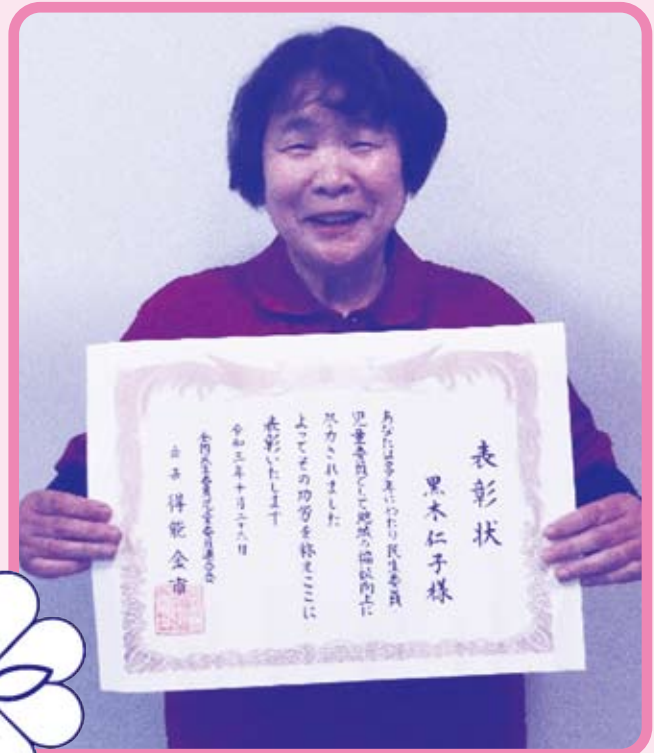 表彰状
黒木仁子様
あなたは多年にわたり民生委員
児童委員として地域の福祉向上に
尽力されました
よってその功労を称えここに
表彰いたします
令和三年十月二十六日
全国民生委員児童委員連合会
会長 得能金市